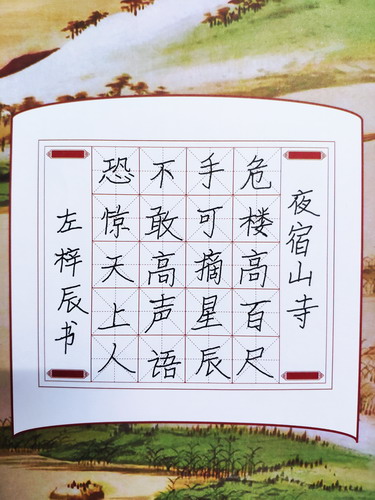 夜宿山寺
危楼高百尺
手可摘星辰
不敢高声语
恐惊天上人
左梓辰书